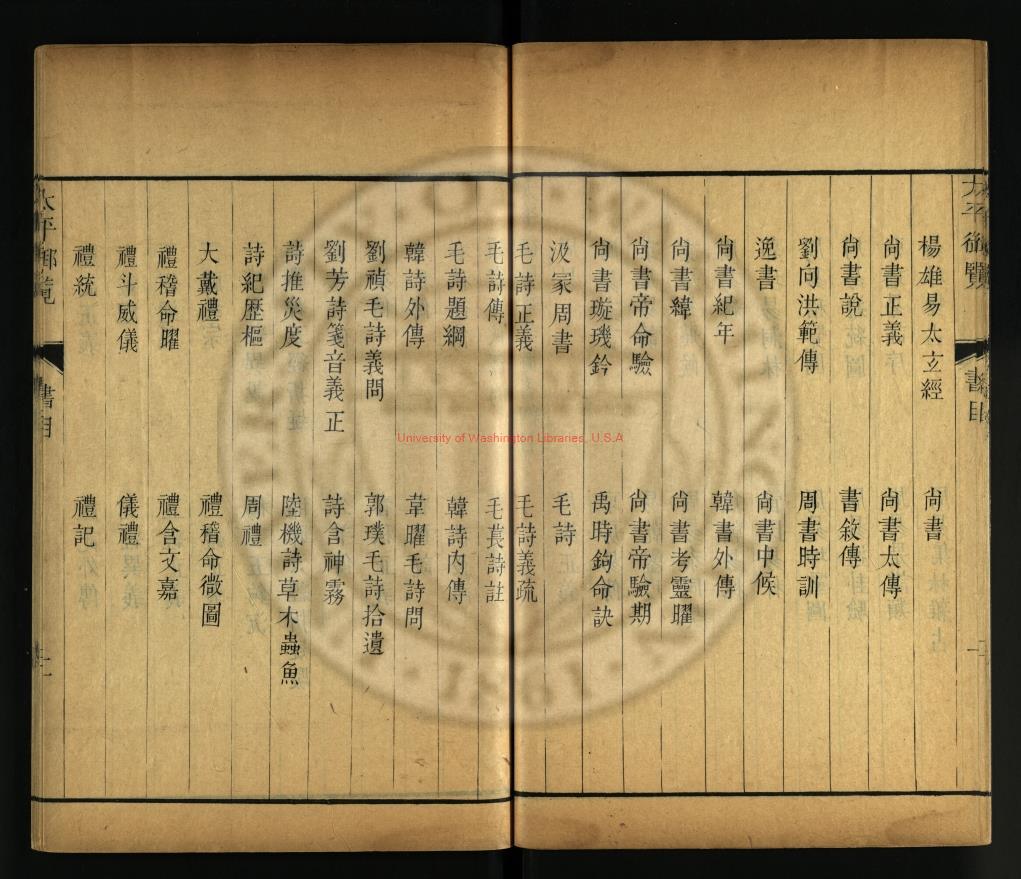 太平御覽 書目
楊雄易太玄經 尙書
尙書正義 尙書太傳
尙書說 書敘傳
劉向洪範傳 周書時訓
逸書 尙書中候
尙書紀年 韓書外傳
尙書緯 尙書考靈曜
尙書帝命驗 尙書帝驗期
尙書璇璣鈐 禹時鉤命訣
汲冢周書 毛詩
毛詩正義 毛詩義疏
毛詩傳 毛萇詩註
毛詩題綱 韓詩內傳
韓詩外傳 韋曜毛詩問
劉禎毛詩義問 郭璞毛詩拾遺
劉芳詩箋音義正 詩含神霧
詩推災度 陸機詩草木蟲魚
詩紀歷樞 周禮
大戴禮 禮稽命徵圖
禮稽命曜 禮含文嘉
禮斗威儀 儀禮
禮統 禮記
太平御覽 書目
University of Washington Libraries, U.S.A